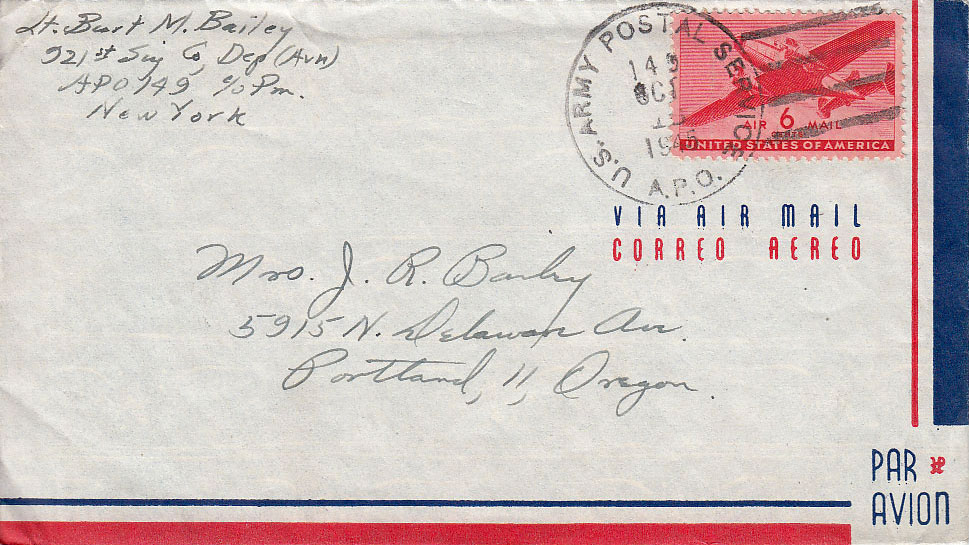 Lt. Burt M. Bailey
921st Sig Co, Dep (Avn)
APO 149 c/o Pm.
New York
U.S. ARMY POSTAL SERVICE
OCT
1945
A.P.O.
AIR 6 MAIL
CENTS
UNITED STATES OF AMERICA
VIA AIR MAIL
CORREO AEREO
Mrs. J. R. Bailey
5915 N. Delaware Av.
Portland, 11, Oregon.
PAR
AVION